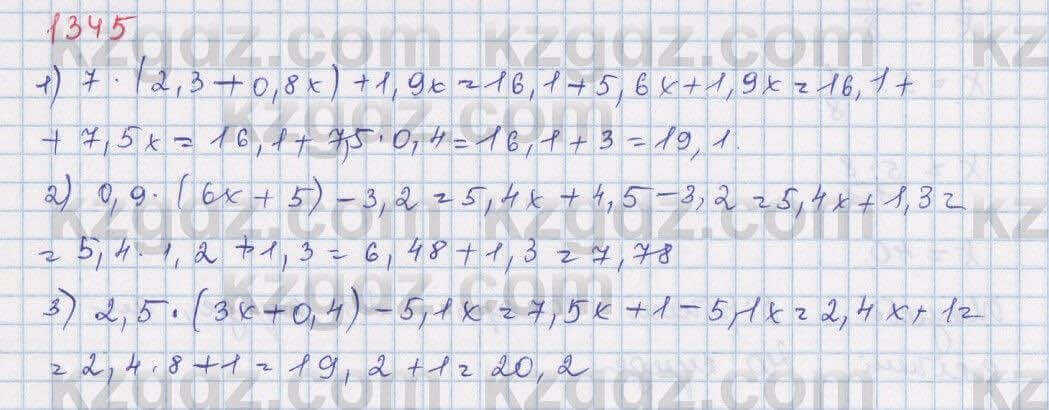 1345
1) 7 · (2,3 + 0,8x) + 1,9x = 16,1 + 5,6x + 1,9x = 16,1 +
+ 7,5x = 16,1 + 7,5 · 0,4 = 16,1 + 3 = 19,1.
2) 0,9 · (6x + 5) - 3,2 = 5,4x + 4,5 - 3,2 = 5,4x + 1,3 =
= 5,4 · 1,2 + 1,3 = 6,48 + 1,3 = 7,78
3) 2,5 · (3x + 0,4) - 5,1x = 7,5x + 1 - 5,1x = 2,4x + 1 =
= 2,4 · 8 + 1 = 19,2 + 1 = 20,2
kzgdz.com